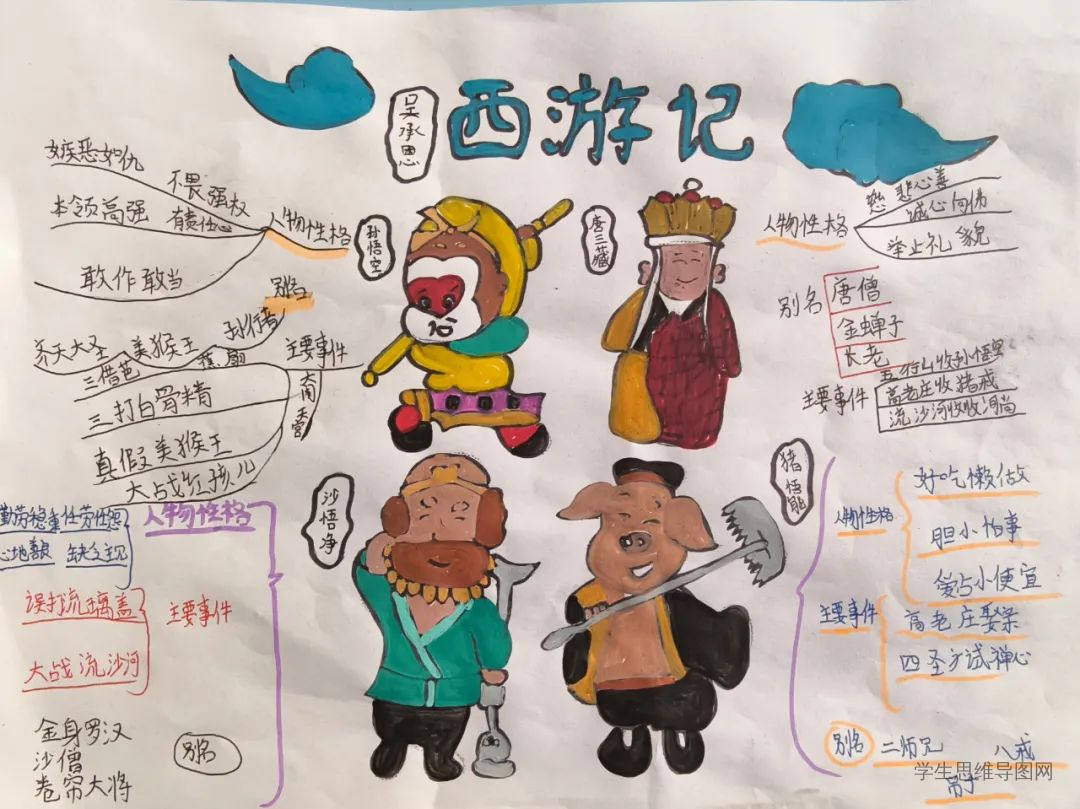 西游记
吴承恩
孙悟空
人物性格
嫉恶如仇
不畏强权
本领高强
有责任心
敢作敢当
别名
齐天大圣
美猴王
孙行者
主要事件
三借芭蕉扇
三打白骨精
真假美猴王
大战红孩儿
大闹天宫
唐三藏
人物性格
慈悲心善
诚心向佛
举止礼貌
别名
唐僧
金蝉子
长老
主要事件
五行山收孙悟空
高老庄收猪戒
流沙河收
沙悟净
人物性格
勤劳稳重
任劳任怨
心地善良
缺乏主见
主要事件
误打流璃盖
大战流沙河
别名
金身罗汉
沙僧
卷帘大将
猪悟能
人物性格
好吃懒做
胆小怕事
爱占小便宜
主要事件
高老庄娶亲
四圣才试禅心
别名
二师兄
八戒
学生思维导图网